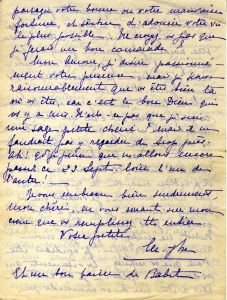 partager votre bonne ou votre mauvaise
fortune, et tâcher d'adoucir votre vie
le plus possible. Ne croyez vs pas que
je serais un bon camarade
Mon amour, je désire passionné-
ment votre
raisonnablement que vs êtes bien là
où vs êtes, car c'est le bon Dieu qui
vs y a mis. N'est-ce pas que je suis
une sage petite chérie ! mais il ne
faudrait pas y regarder de trop près.
Ah ! que nous allons encore
passer ce 23 Sept. loin l'un de
l'autre !
Je vous embrasse bien tendrement
mon chéri, en vous serrant sur mon
cœur que vs remplissez tt entier.
Votre petite
Et un bon baiser de Babet.